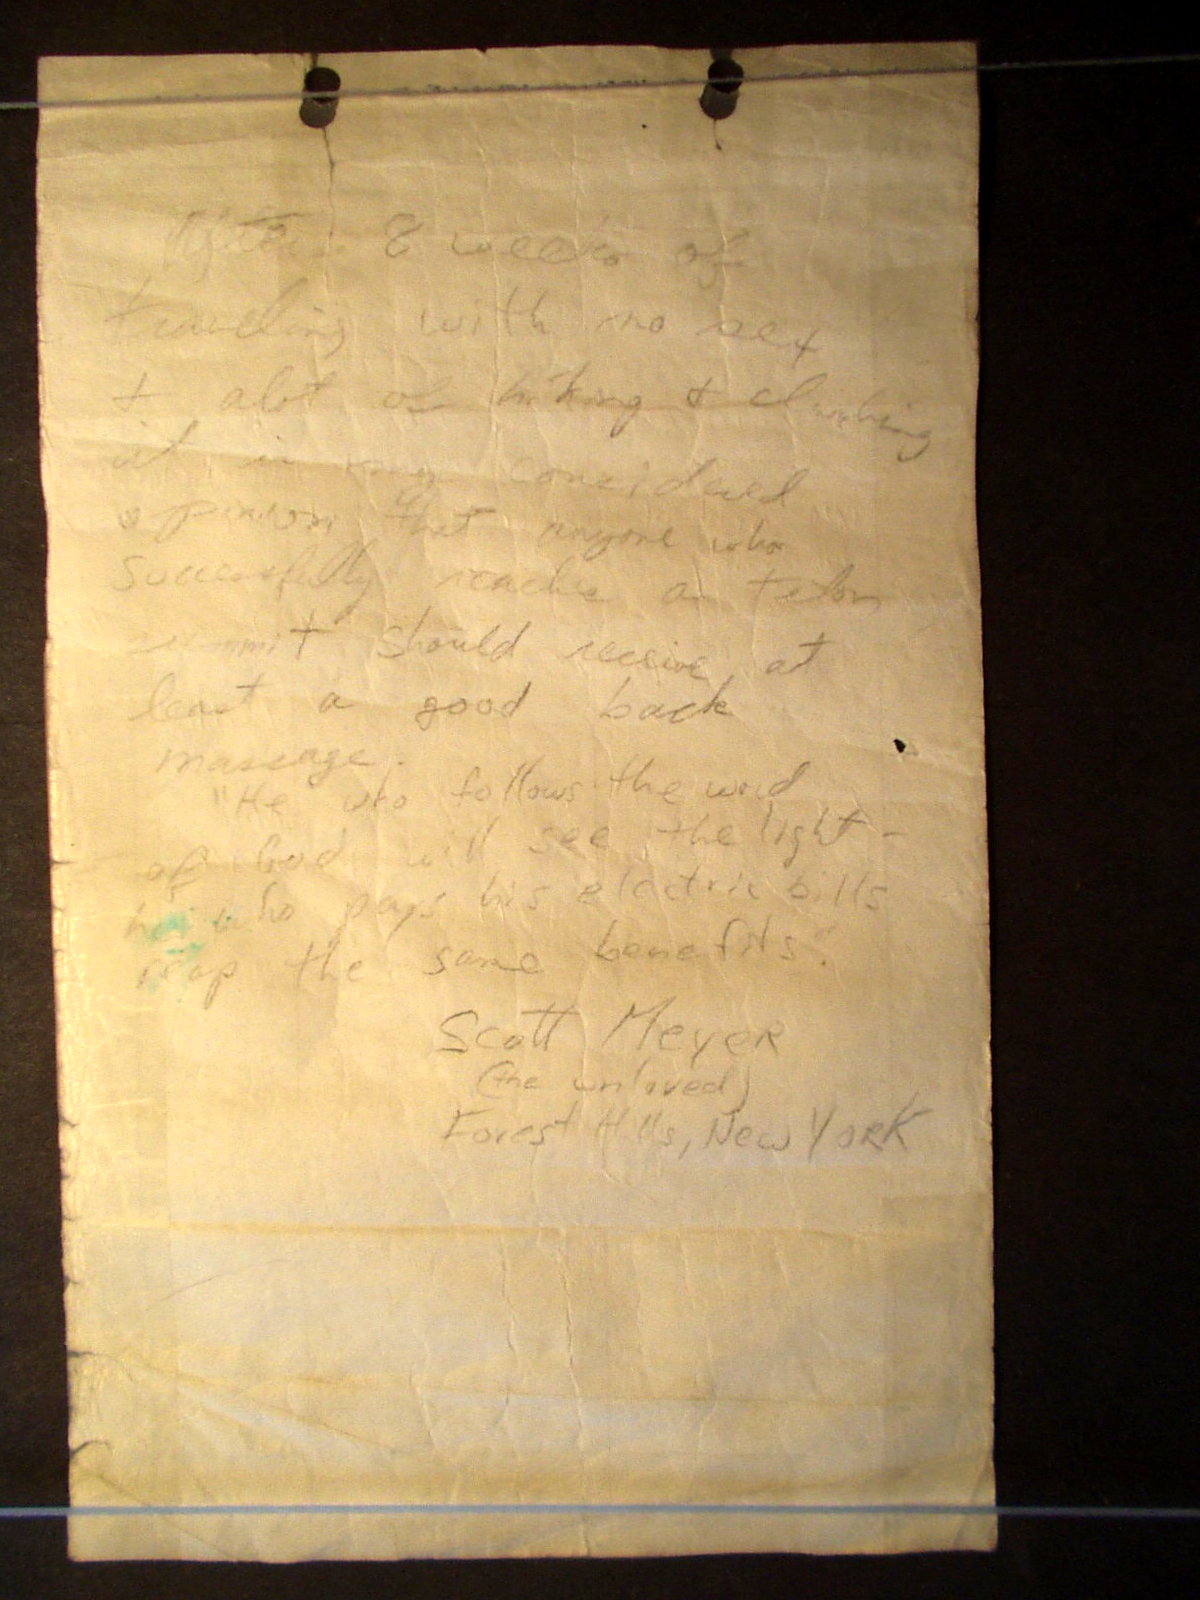 After 8 weeks of
traveling with no sex
+ alot of hiking + climbing
it is my considered
opinion that anyone who
successfully reaches a Teton
summit should receive at
least a good back
massage.
"He who follows the word
of God will see the light -
he who pays his electric bills
reap the same benefits".
Scott Meyer
(the unloved)
Forest Hills, New York